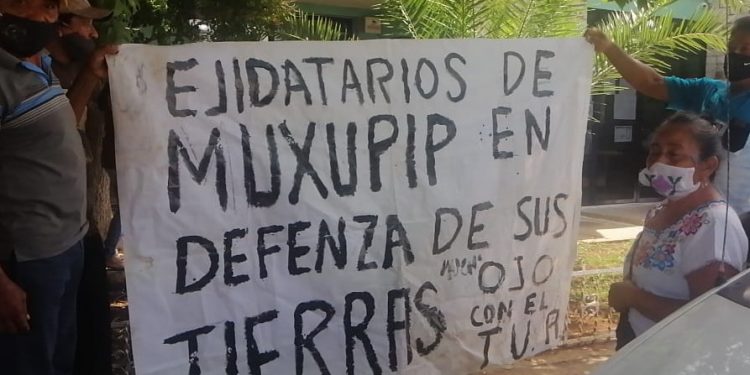 EJIDATARIOS DE
MUXUPIP EN
DEFENZA DE SUS
TIERRAS
OJO
CON EL
T.U.A.